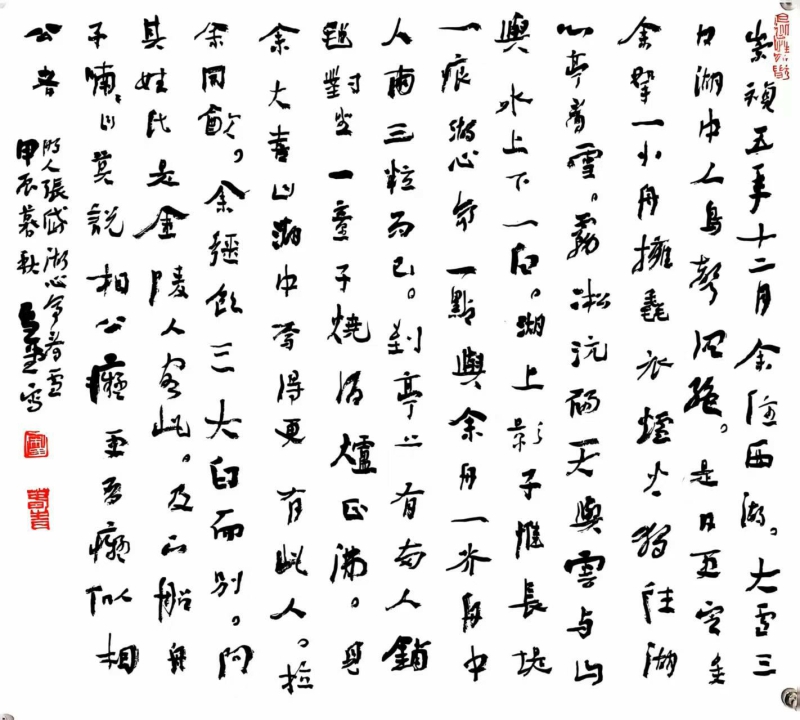 崇禎五年十二月余住西湖。大雪三
日湖中人鳥聲俱絕。是日更定矣
余拏一小舟擁毳衣爐火獨往湖
心亭看雪。霧淞沆碭天與雲与山
與水上下一白。湖上影子惟長堤
一痕湖心亭一點與余舟一芥舟中
人兩三粒而已。到亭上有兩人鋪
氈對坐一童子燒酒爐正沸。見
余大喜曰湖中焉得更有此人。拉
余同飲。余強飲三大白而别。問
其姓氏是金陵人客此。及下船舟
子喃々曰莫說相公癡更有癡似相
公者
明人張岱湖心亭看雪
甲辰暮秋寫